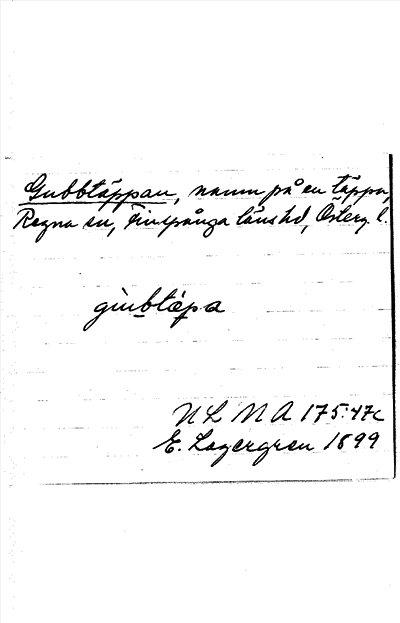 Gubbtäppan, namn på en täppa,
Regna sn, Finspånga läns hd, Österg. l.
gùbtæ̀pa
ULMA 175:47c
E. Lagergren 1899